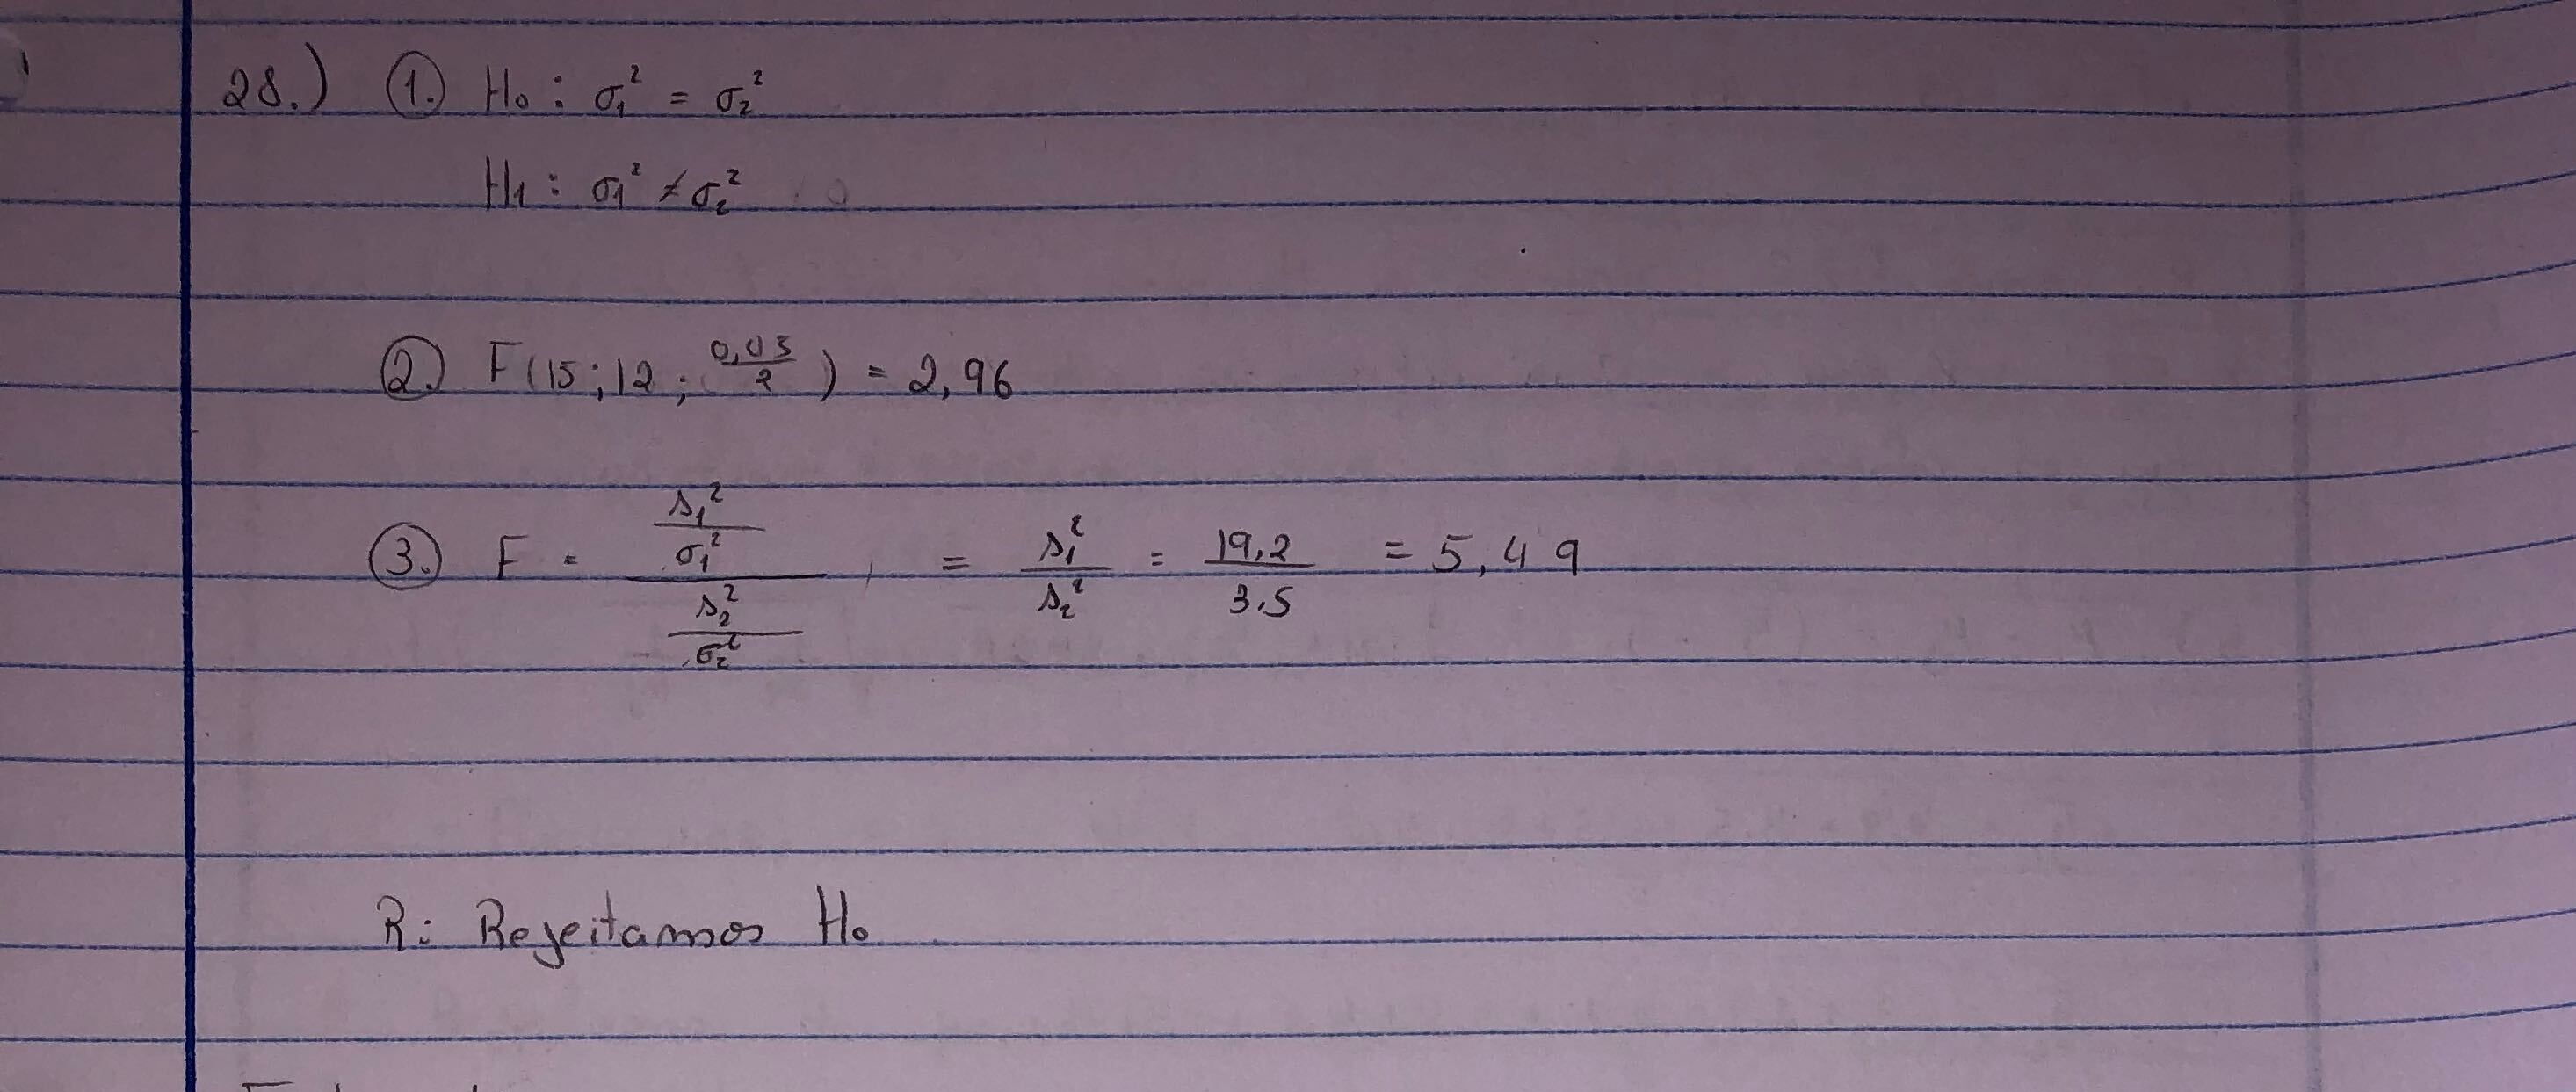 28.) ①. H₀ : σ₁² = σ₂²
H₁ : σ₁² ≠ σ₂²
②. F(15;12; 0,05/2) = 2,96
③. F = (s₁²/σ₁²)/(s₂²/σ₂²) = s₁²/s₂² = 19,2/3,5 = 5,49
R: Rejeitamos H₀